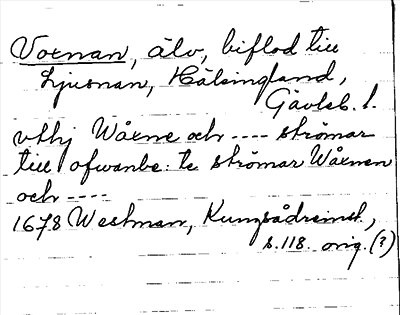 Voxnan, älv, biflod till
Ljusnan, Hälsingland,
Gävleb. l.
vthj Wåxne och ---- strömar
till ofwanbe: te strömar Wåxnen
och ----
1678 Westman, Kungsådreinst.,
s. 118. orig. (?)